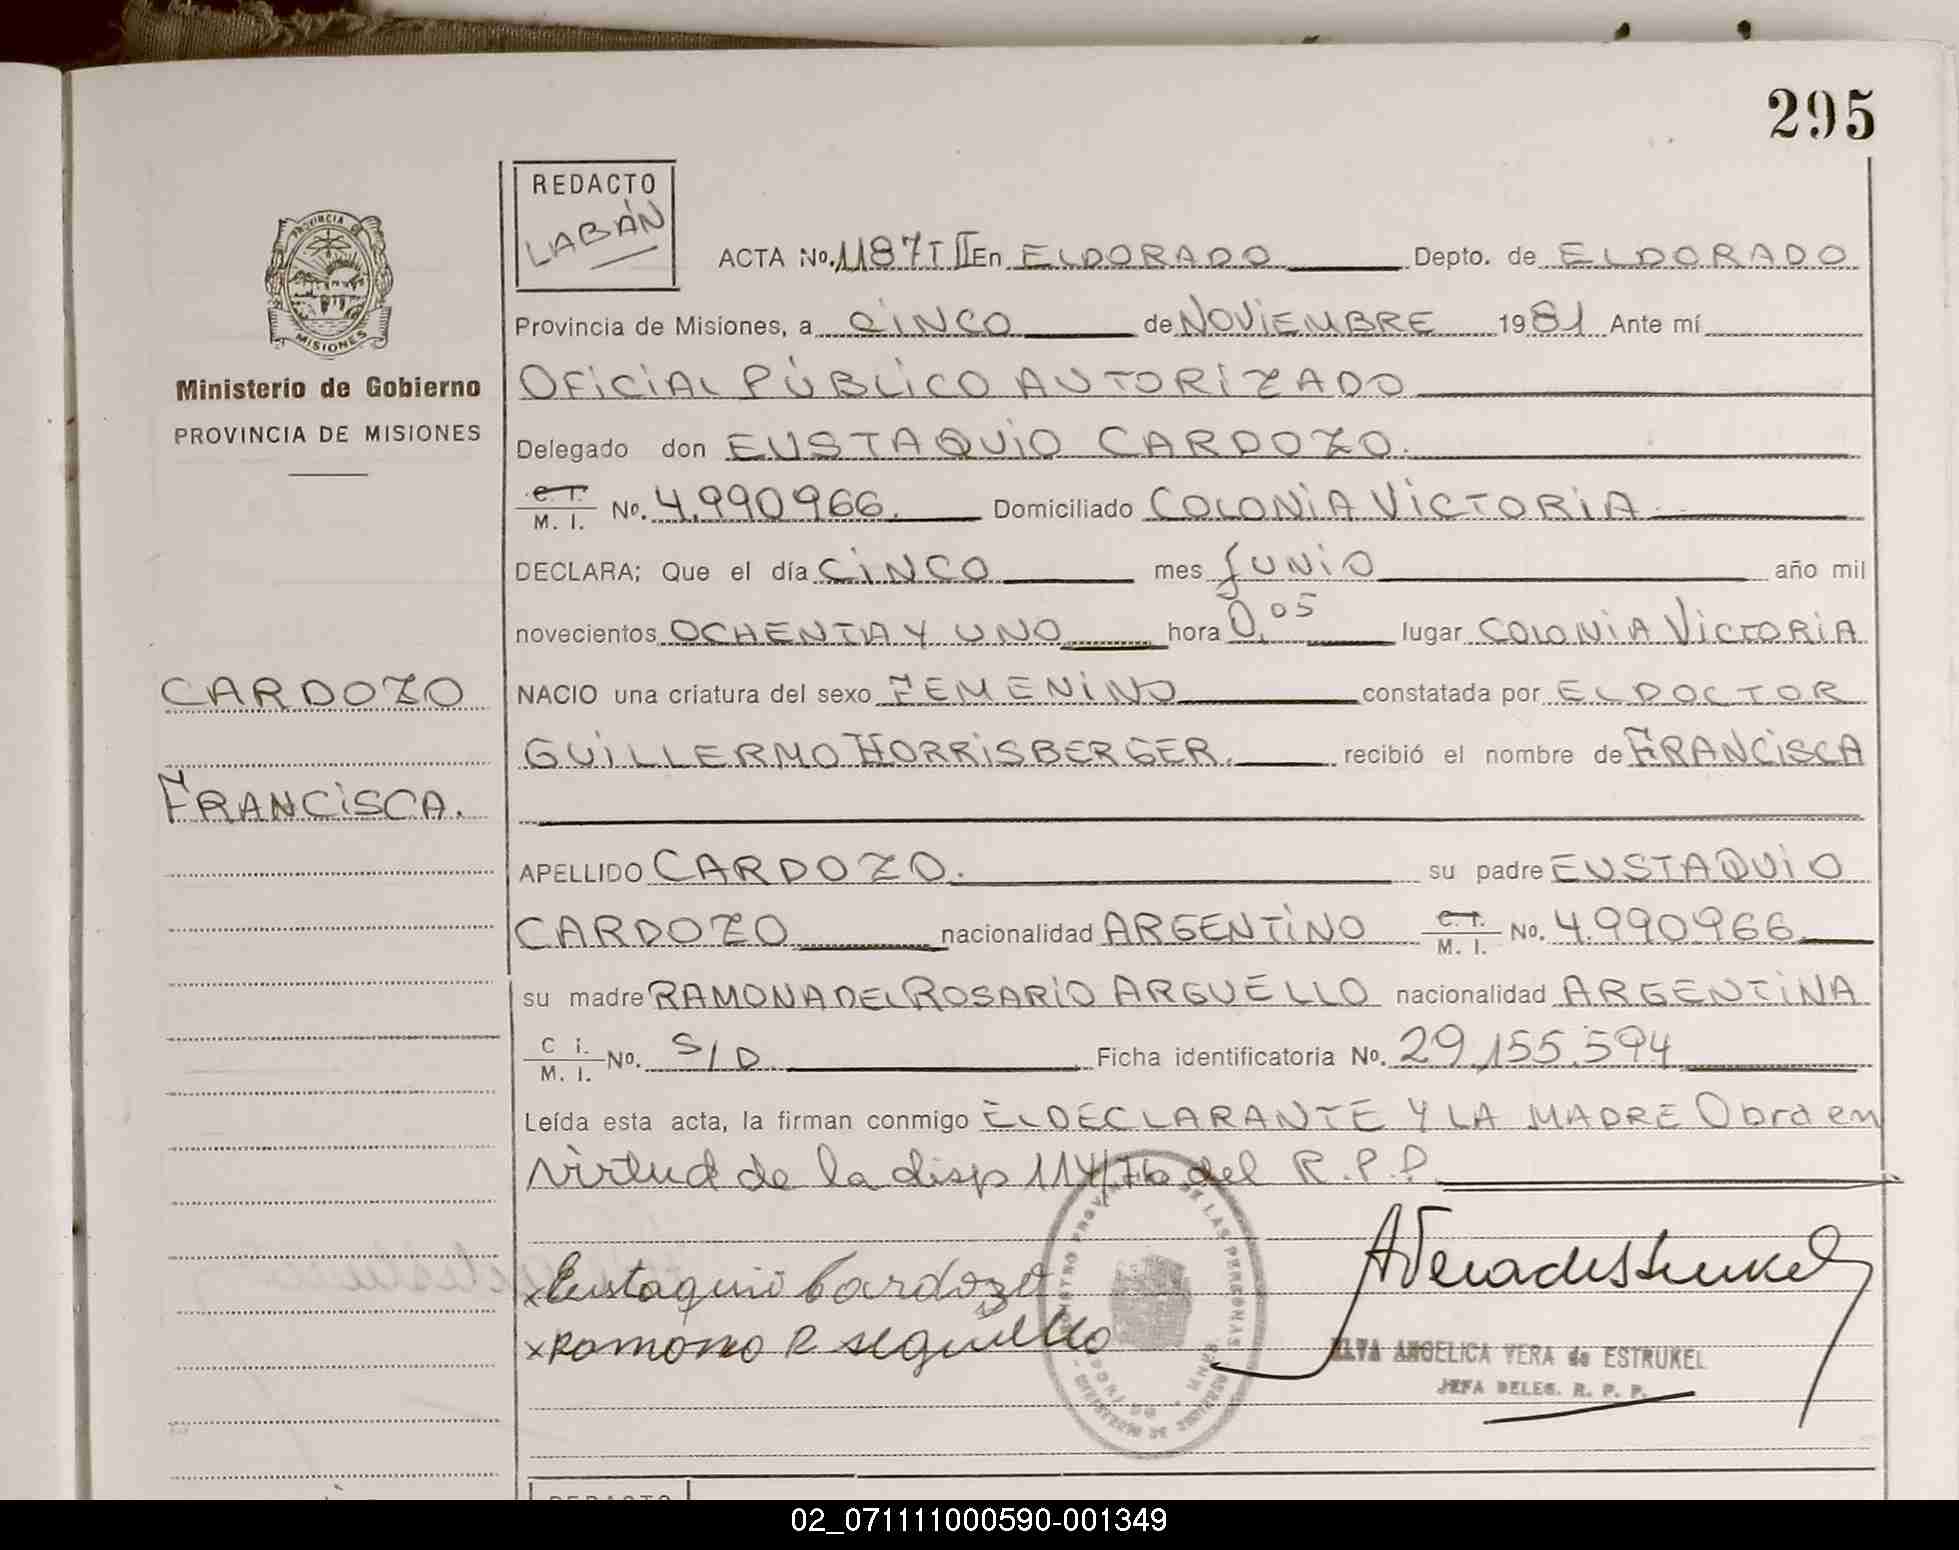 295
REDACTO
LABÁN
ACTA No. 1187 T II En ELDORADO Depto. de ELDORADO
Provincia de Misiones, a CINCO de NOVIEMBRE 1981 Ante mí
Ministerio de Gobierno
PROVINCIA DE MISIONES
OFICIAL PÚBLICO AUTORIZADO
Delegado don EUSTAQUIO CARDOZO.
C. I. M. I. No. 4.990966. Domiciliado COLONIA VICTORIA
DECLARA; Que el día CINCO mes JUNIO año mil
novecientos OCHENTA Y UNO hora 0,05 lugar COLONIA VICTORIA
CARDOZO
FRANCISCA.
NACIO una criatura del sexo FEMENINO constatada por EL DOCTOR
GUILLERMO HORRISBERGER. recibió el nombre de FRANCISCA
APELLIDO CARDOZO. su padre EUSTAQUIO
CARDOZO nacionalidad ARGENTINO C. I. M. I. No. 4.990966
su madre RAMONA DEL ROSARIO ARGUELLO nacionalidad ARGENTINA
C. I. M. I. No. S/D Ficha identificatoria No. 29,155.594
Leída esta acta, la firman conmigo EL DECLARANTE Y LA MADRE Obra en
virtud de la disp 114/76 del R.P.P.
x Eustaquio Cardozo
x Ramona R
ELVA ANGELICA VERA de ESTRUKEL
JEFA DELEG. R. P. P.
REDACTO
02_071111000590-001349